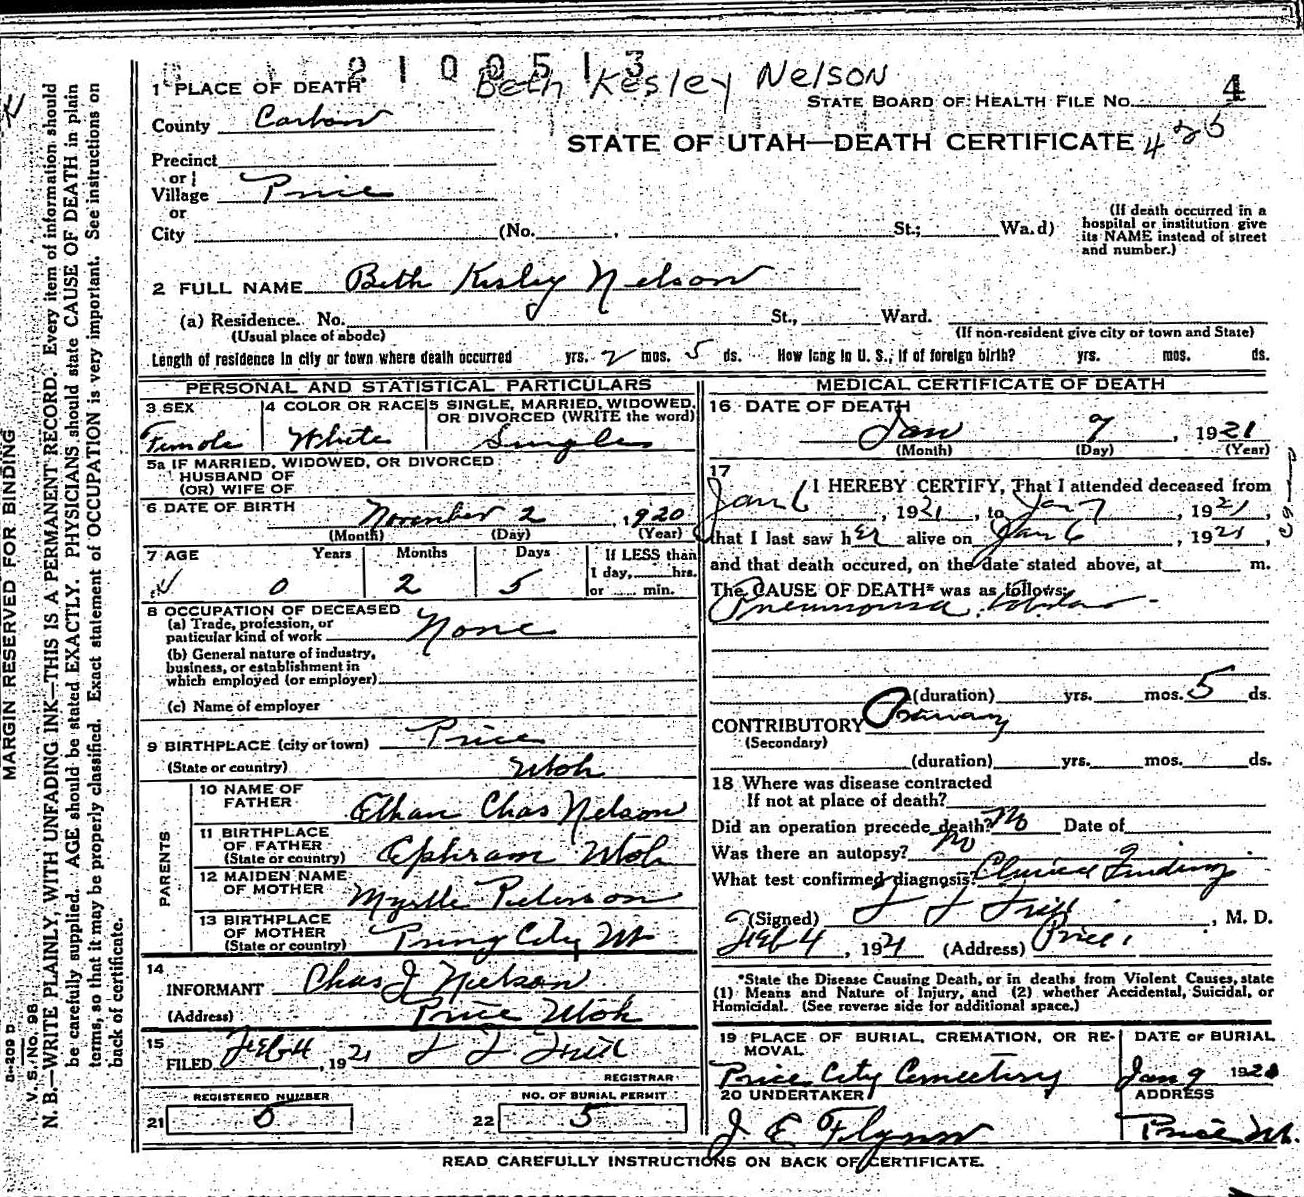 2100513
Beth Kesley Nelson
1 PLACE OF DEATH
STATE BOARD OF HEALTH FILE No. 4
County Carbon
STATE OF UTAH—DEATH CERTIFICATE 426
Precinct
or
Village Price
or
City (No. , St.; Wa.d)
(If death occurred in a hospital or institution give its NAME instead of street and number.)
2 FULL NAME Beth Kesley Nelson
(a) Residence. No. St., Ward.
(Usual place of abode) (If non-resident give city or town and State)
Length of residence in city or town where death occurred yrs. 2 mos. 5 ds. How long in U. S., if of foreign birth? yrs. mos. ds.
PERSONAL AND STATISTICAL PARTICULARS
3 SEX 4 COLOR OR RACE 5 SINGLE, MARRIED, WIDOWED, OR DIVORCED (WRITE the word)
Female White Single
5a IF MARRIED, WIDOWED, OR DIVORCED
HUSBAND OF
(OR) WIFE OF
6 DATE OF BIRTH November 2, 1920
(Month) (Day) (Year)
7 AGE Years Months Days If LESS than
1 day, hrs.
0 2 5 or min.
8 OCCUPATION OF DECEASED
(a) Trade, profession, or
particular kind of work None
(b) General nature of industry,
business, or establishment in
which employed (or employer)
(c) Name of employer
9 BIRTHPLACE (city or town) Price
(State or country) Utah
PARENTS
10 NAME OF
FATHER Ethan Chas Nelson
11 BIRTHPLACE
OF FATHER
(State or country) Ephram Utah
12 MAIDEN NAME
OF MOTHER Myrtle Peterson
13 BIRTHPLACE
OF MOTHER
(State or country) City Ut
14
INFORMANT Chas J Nielson
(Address) Price Utah
15
FILED Feb 4, 1921
REGISTRAR
REGISTERED NUMBER NO. OF BURIAL PERMIT
21 22 5
MEDICAL CERTIFICATE OF DEATH
16 DATE OF DEATH
Jan 7, 1921
(Month) (Day) (Year)
17 I HEREBY CERTIFY, That I attended deceased from
Jan 6, 1921, to Jan 7, 1921,
that I last saw her alive on Jan 6, 1921,
and that death occured, on the date stated above, at m.
The CAUSE OF DEATH* was as follows:
Pneumonia Lobar
(duration) yrs. mos. 5 ds.
CONTRIBUTORY
(Secondary)
(duration) yrs. mos. ds.
18 Where was disease contracted
If not at place of death?
Did an operation precede death? No Date of
Was there an autopsy? No
What test confirmed diagnosis? Clinical Findings
(Signed) , M. D.
Feb 4, 1921 (Address) Price,
*State the Disease Causing Death, or in deaths from Violent Causes, state
(1) Means and Nature of Injury, and (2) whether Accidental, Suicidal, or
Homicidal. (See reverse side for additional space.)
19 PLACE OF BURIAL, CREMATION, OR RE- DATE OF BURIAL
MOVAL
Price City Cemetery Jan 9 192
20 UNDERTAKER ADDRESS
J E Flynn Price Ut.
READ CAREFULLY INSTRUCTIONS ON BACK OF CERTIFICATE.
MARGIN RESERVED FOR BINDING
S-209 D
V. S. No. 98
N. B.—WRITE PLAINLY, WITH UNFADING INK—THIS IS A PERMANENT RECORD. Every item of information should
be carefully supplied. AGE should be stated EXACTLY. PHYSICIANS should state CAUSE OF DEATH in plain
terms, so that it may be properly classified. Exact statement of OCCUPATION is very important. See instructions on
back of certificate.